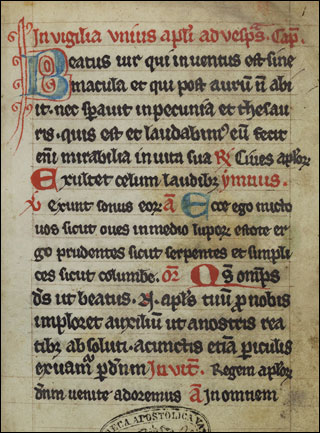 In vigilia unius apl̃i ad vesp̃s. Cap̃.
Beatus uir qui inuentus est sine
macula et qui post aurũ ñ abi
it. nec sp̃auit in pecunia et thesau
ris. quis est et laudabim᷒ eũ fecit
eñi mirabilia in uita sua R̃ Ciues aplõr
Exultet celum laudibꝫ ymnus.
V exunt sonus eor ã Ecce ego mitto
uos sicut oues in medio lupor estote er
go prudentes sicut serpentes et simpli
ces sicut columbe. or̃ Q̃s om̃ps
d̃s ut beatus .N. apl̃s tuũ p̃ nobis
imploret auxiliũ ut a nostris rea
tibꝫ absoluti. a cunctis etiã periculis
exuamur p̃ dñm Inuit̃. Regem aplõr
dñm uenite adoremus ã In omnem
ECA APOSTOLICA VA